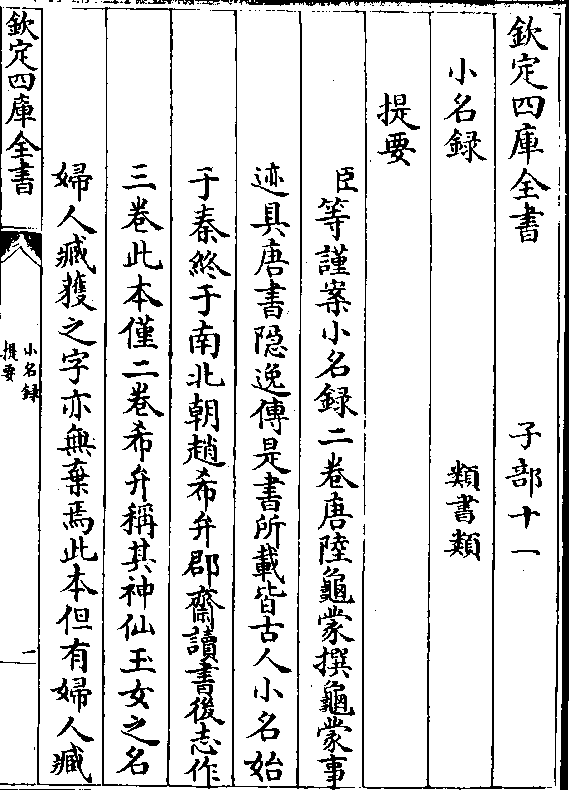 欽定四庫全書　　　　子部十一
小名録　　　　　　　類書類
提要
臣等謹案小名録二卷唐陸龜蒙撰龜蒙事
迹具唐書隐逸傳是書所載皆古人小名始
于秦終于南北朝趙希弁郡齋讀書後志作
三卷此本僅二卷希弁稱其神仙玉女之名
婦人臧獲之字亦無棄焉此本但有婦人臧
欽定四庫全書
小名録
提要
一